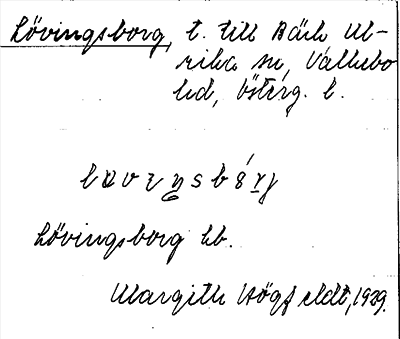 Lövingsborg, t. till Bäck Ul-
rika sn, Vallebo
hd, Österg. l.
Lövingsborg hb.
Margith Högfeldt, 1939.